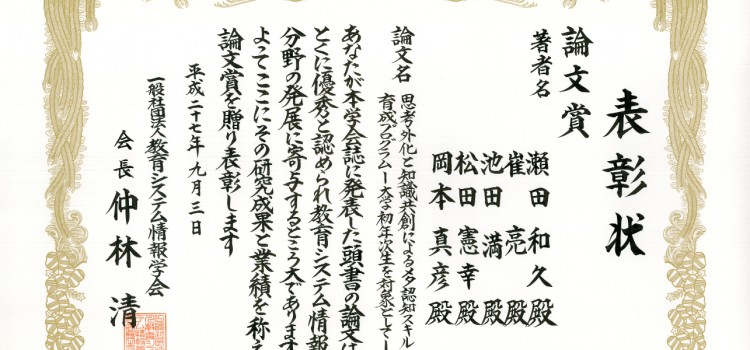 表彰状
論文賞
著者名
瀬田 和久 殿
崔 亮 殿
池田 満 殿
松田 憲幸 殿
岡本 真彦 殿
論文名 思考外化と知識共創によるメタ認知スキル
育成プログラムー大学初年次生を対象として
あなたが本学会誌に発表した頭書の論文は
とくに優秀と認められ教育システム情報
分野の発展に寄与するところ大であります
よってここにその研究成果と業績を称え
論文賞を贈り表彰します
平成二十七年九月三日
一般社団法人教育システム情報学会
会長 仲林 清